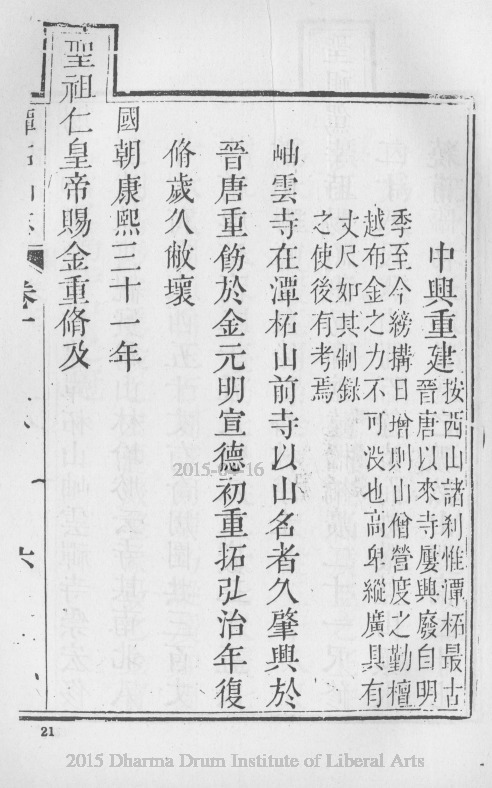 中興重建
按西山諸刹惟潭柘最古
晉唐以來寺屢興廢自明
季至今繕搆日增則山僧營度之勤檀
越布金之力不可沒也高卑縱廣具有
丈尺如其制錄
之使後有考焉
岫雲寺在潭柘山前寺以山名者久肇興於
晉唐重飭於金元明宣德初重拓弘治年復
脩歲久敝壞
國朝康熙三十一年
聖祖仁皇帝賜金重脩及
卷一
六
21
2015 Dharma Drum Institute of Liberal Arts